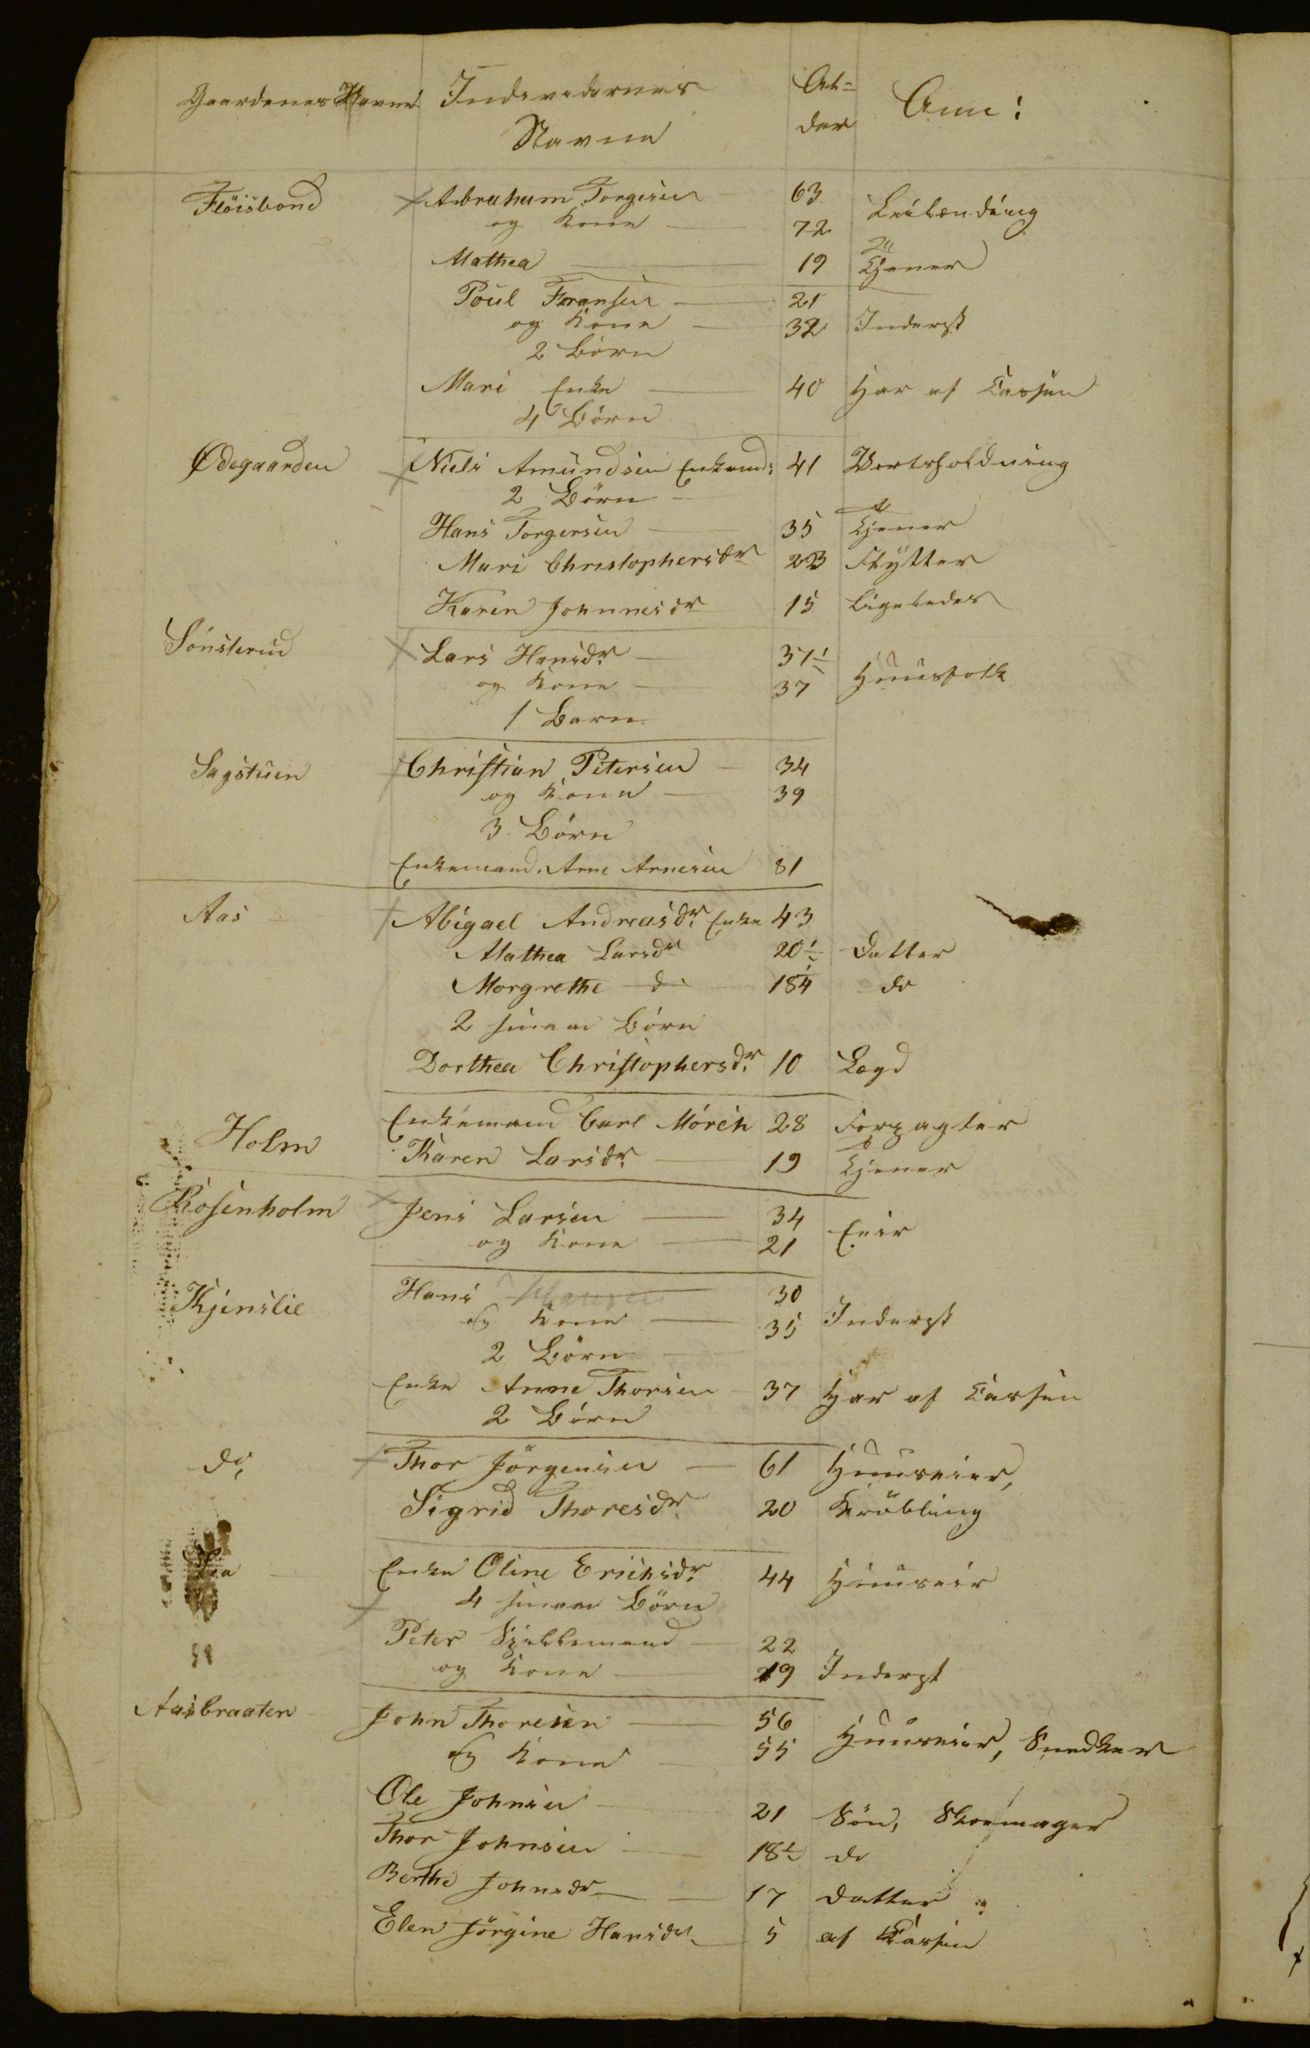 Gaardenes Navne Individernes Navne Al= der Anm:
Flöisbond Abraham Torgersen 63 Leilænding
og Kone 72
Mathea 19 Tjener
Poul Fransen 21 Inderst
og Kone 32
2 Börn
Mari Enke 40 Har af Cassen
4 Börn
Ødegaarden Niels Amundsen Enkemd: 41
2 Börn
Hans Torgersen 35 Tjener
Mari Christophersdr 23 Flytter
Karen Johannesdr 15 Ligeledes
Sönsterud Lars Hansdr 37 Huusfolk
og Kone 37
1 Barn
Sagstuen Christian Petersen 34
og Kone 39
3 Börn
Enkemand Arne Arnesen 81
Aas Abigael Andreasdr. Enke 43
Mathea Larsdr 20½ Datter
Margrethe do 18¼ do
2 smaae Börn
Dorthea Christophersdr. 10 Lægd
Holm Enkemand Carl Mörch 28 Forpagter
Karen Larsdr. 19 Tjener
Rosenholm Jens Larsen 34 Eier
og Kone 21
Kjenslie Hans Hansen 30 Inderst
og Kone 35
2 Börn
Enke Anne Thorsen 37 Har af Cassen
2 Börn
do, Thor Jörgensen 61 Huuseier,
Sigrid Thoresdr. 20 Kröbling
Enke Oline Erichsdr. 44 Huuseier
4 smaae Börn
Peter Spillemand 22
og Kone 19 Inderst
Aasbraaten John Thoresen 56 Huuseier, Snedker
og Kone 55
Ole Johnsen 21 Sön, Skoemager
Thor Johnsen 18½ do
Berthe Johnsdr 17 Datter
Elen Jörgine Hansdr. 5 af Cassen